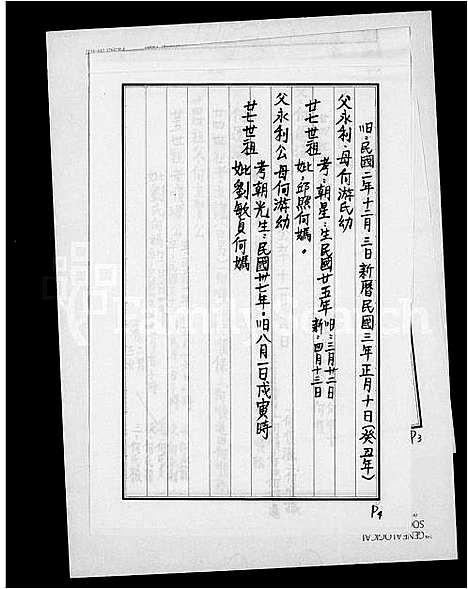 旧:民國二年十二月三日新曆民國三年正月十日(癸丑年)
父永利、母何游氏幼
廿七世祖 考:朝星:生民國廿五年 旧:三月廿二日 新:四月十三日
妣:邱照何媽。
父永利公母何游幼
廿七世祖 考朝光生:民國卅七年.旧八月一日戊寅時
妣劉敏貞何媽
P4
P3
GENEALOGICAL
SO